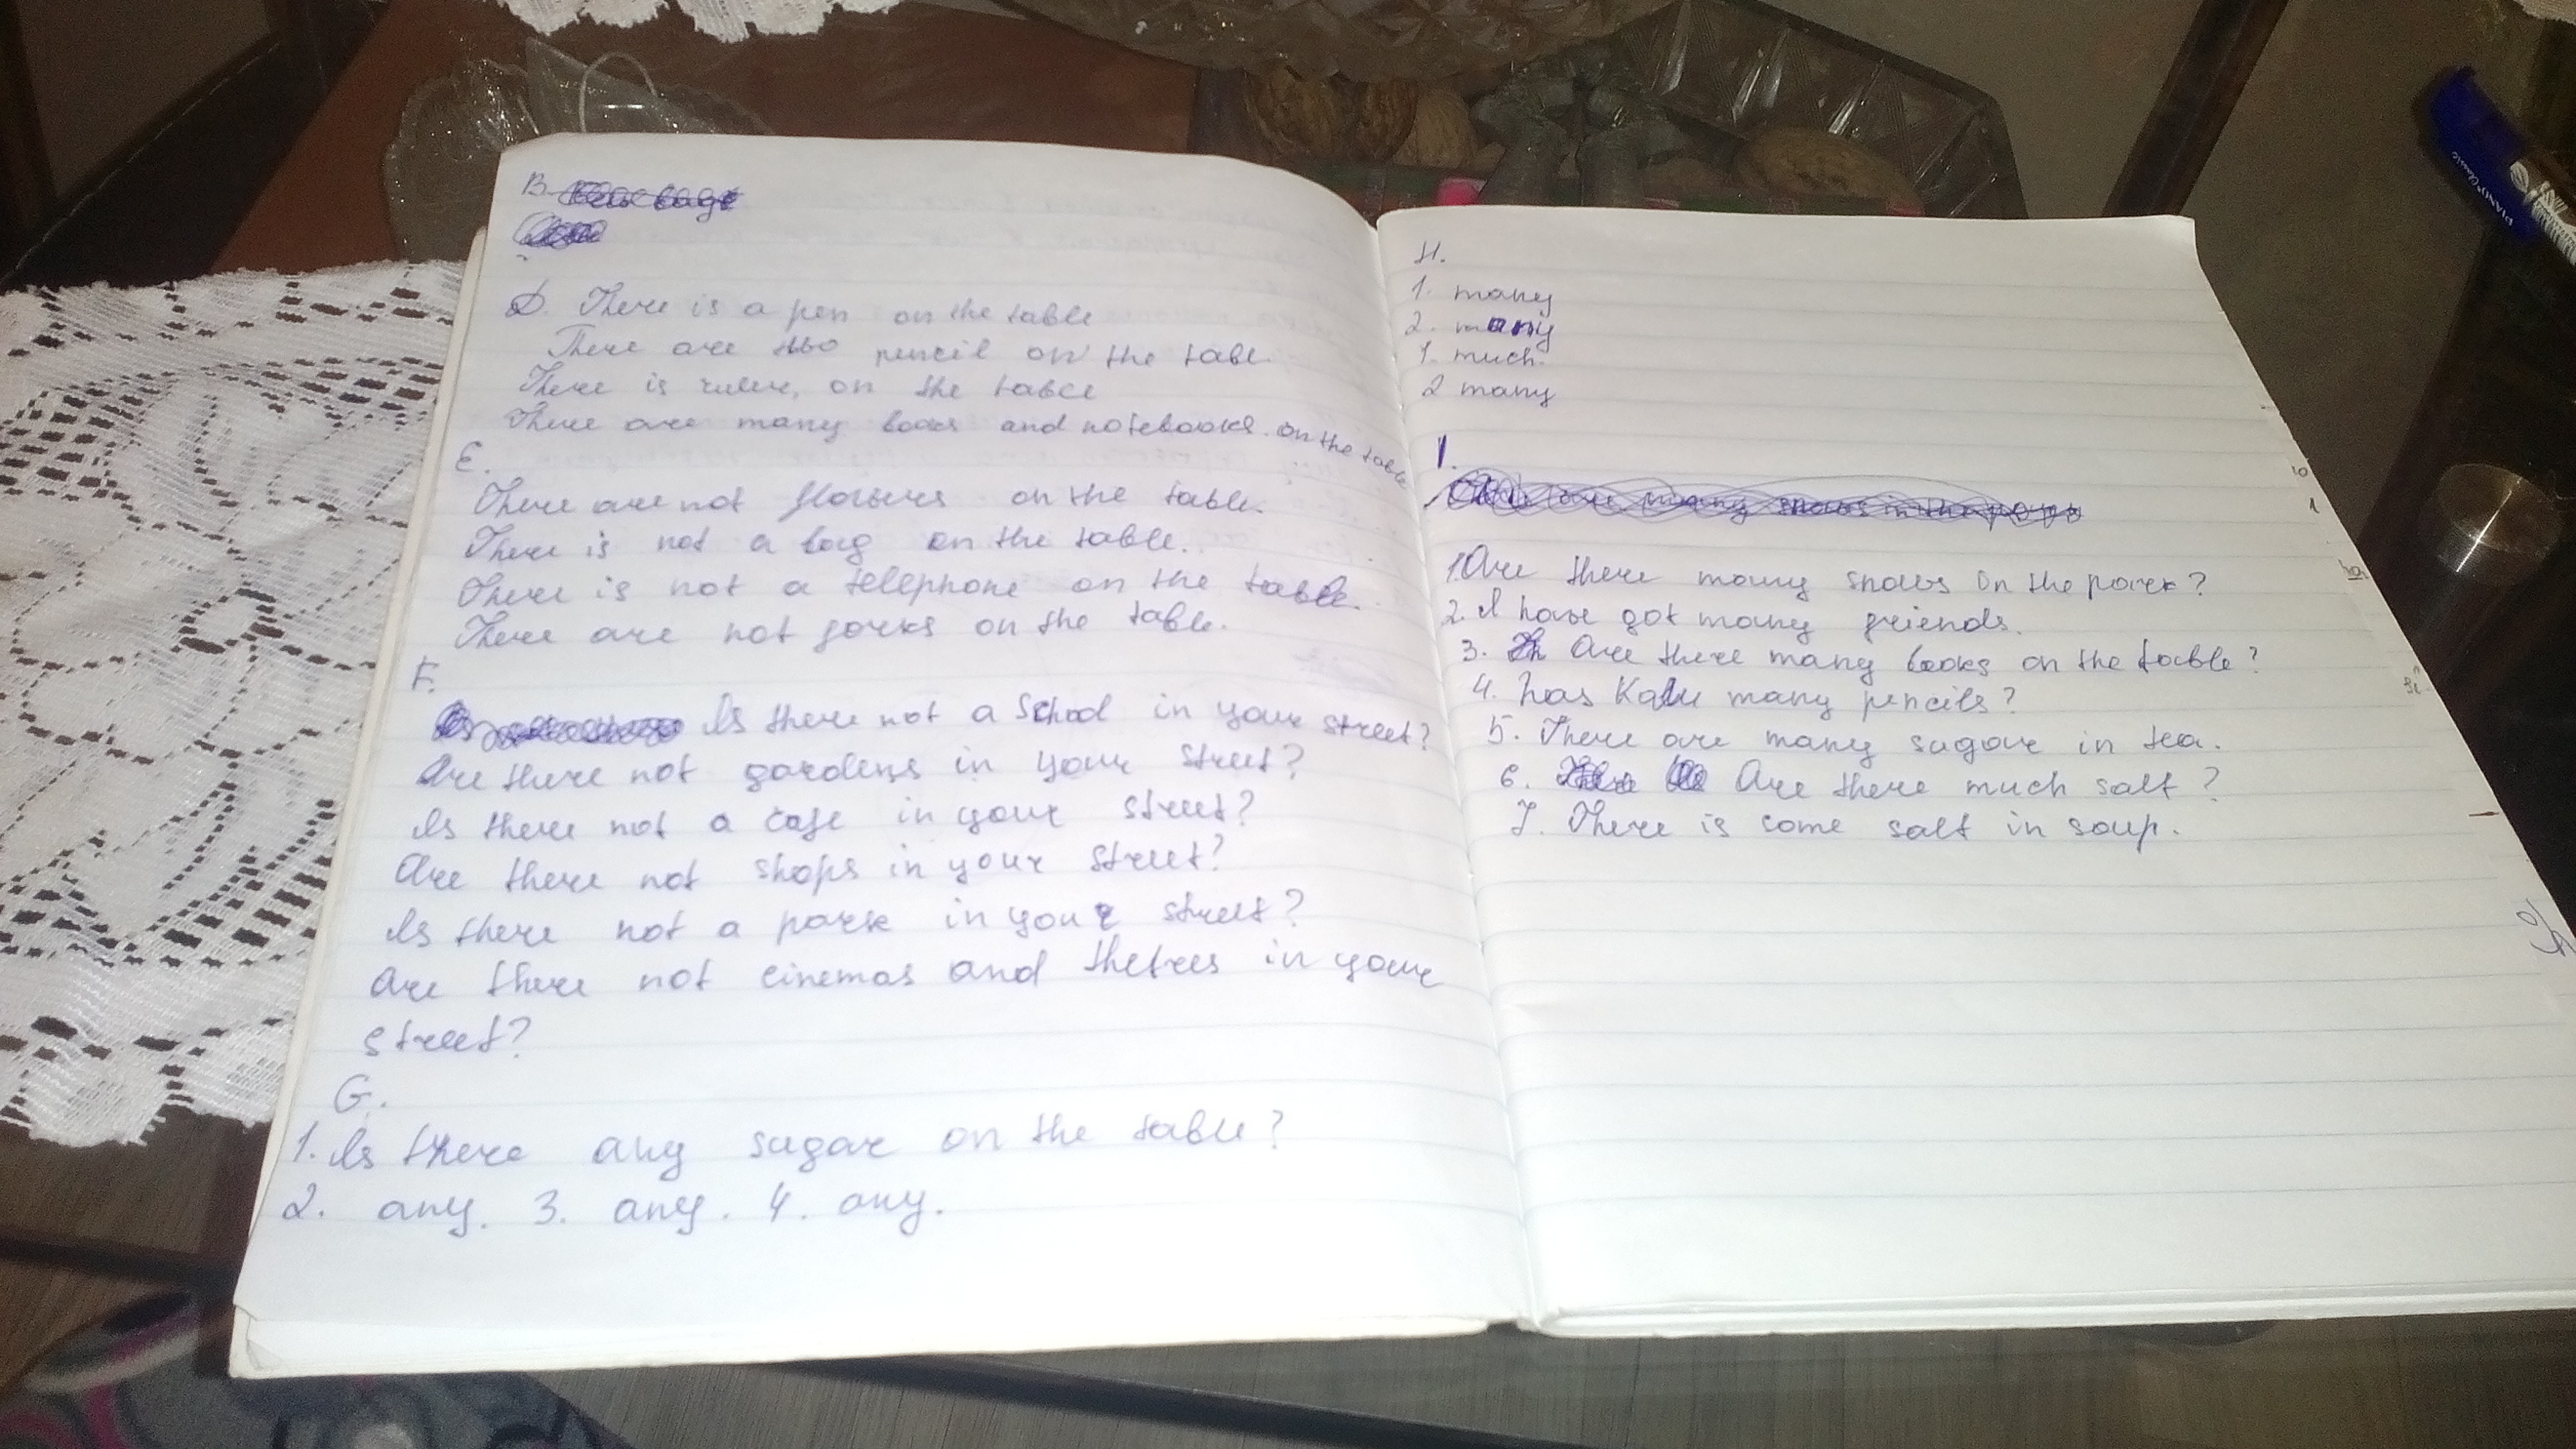 B.
D. There is a pen on the table
There are two pencil on the tabl.
There is ruler, on the table
There are many books and notebooks. on the table
E.
There are not flowers on the table.
There is not a bag on the table.
There is not a telephone on the table.
There are not forks on the table.
F.
Is there not a school in your street?
Are there not gardens in your street?
Is there not a cafe in your street?
Are there not shops in your street?
Is there not a park in your street?
Are there not cinemas and thetres in your
street?
G.
1. Is there any sugar on the table?
2. any. 3. any. 4. any.
H.
1. many
2. many
1. much.
2 many
I.
are many snows in the
1. Are there many snows in the park?
2. I have got many friends.
3. Are there many books on the table?
4. has many pencils?
5. There are many sugar in tea.
6. Are there much salt?
7. There is some salt in soup.
PIANO Classic